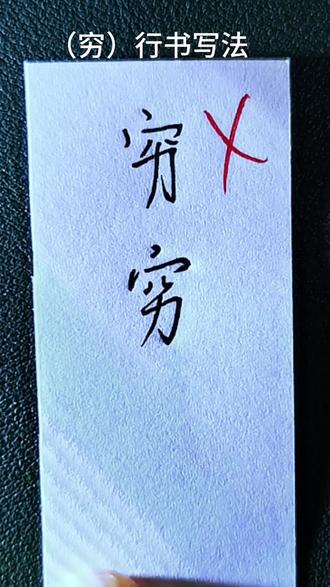 （穷）行书写法
穷
穷